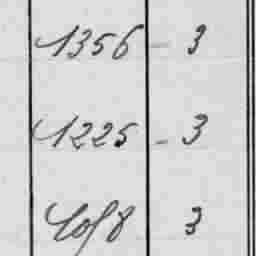 1356 - 3
1225 - 3
3